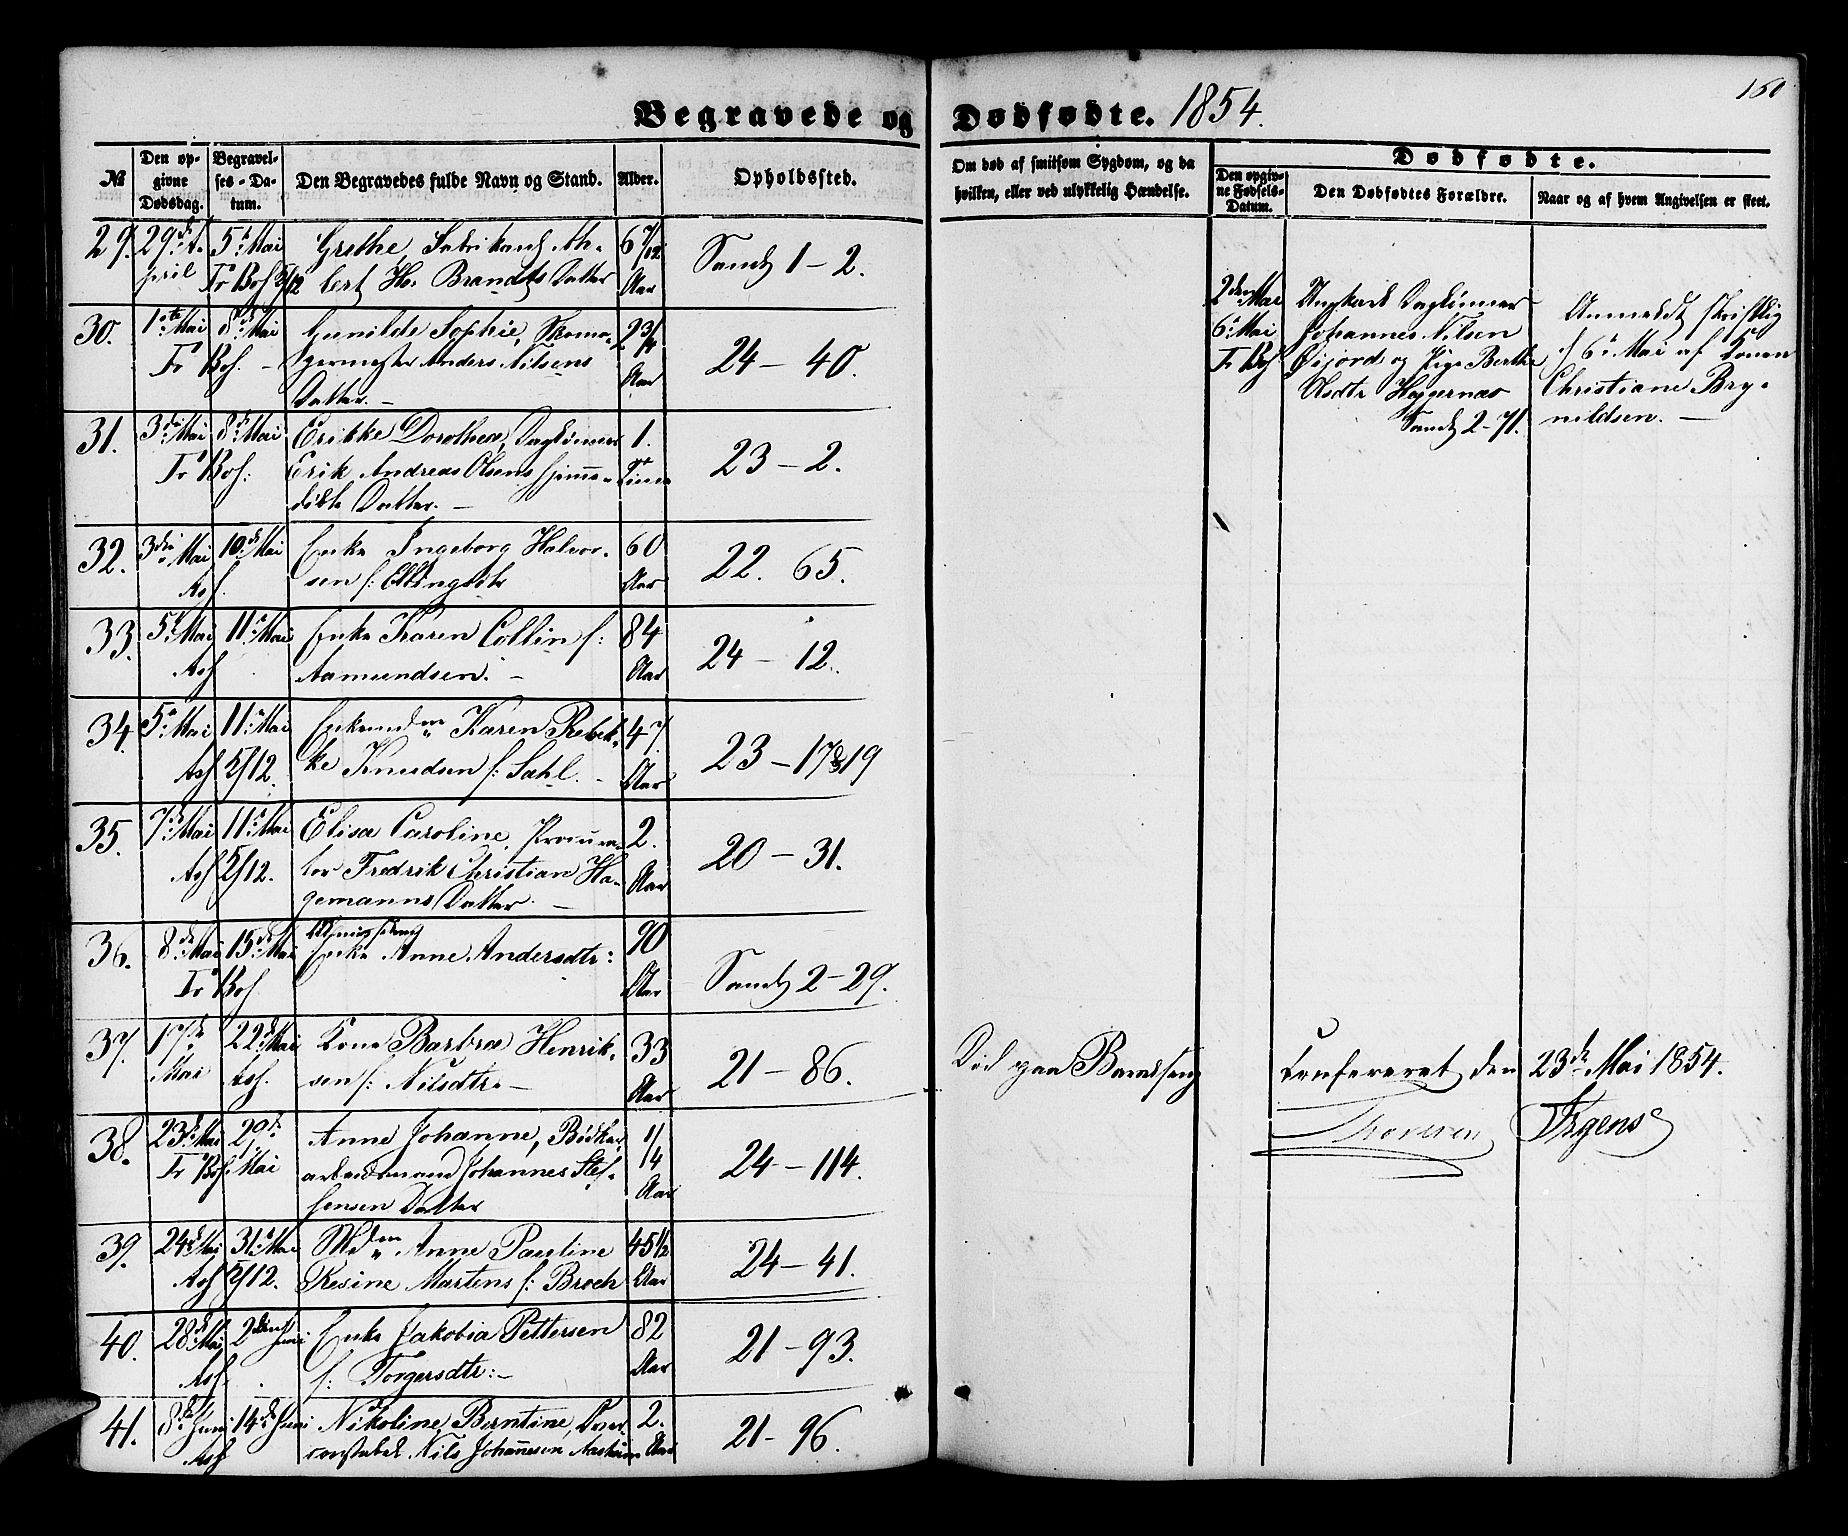 160
Begravede og Dødfødte. 1854.
№
Den opgivne Dødsdag.
Begravelses-Datum.
Den Begravedes fulde Navn og Stand.
Alder.
Opholdssted.
Om død af smitsom Sygdom, og da hvilken, eller ved ulykkelig Hændelse.
Dødfødte.
Den opgivne Fødsels-Datum.
Den Dødfødtes Forældre.
Naar og af hvem Angivelsen er skeet.
29. 29de A- 5te Mai Grethe, Fabrikant Al- 6 7/12
pril Fr Bof 5/12 bert H. Brandts Datter Aar
Sandv 1-2.
30. 1ste Mai 8de Mai Gunilde Sophie, Skoma-
Fr Bof. germester Anders Nilsens Aar
Datter.
24-40.
31. 3die Mai 8de Mai Erikke Dorothea, Daglønner 1.
Fr Bof: Erik Andreas Olsens hjemme- Time
døbte Datter.
23-2.
32. 3die Mai 10de Mai Enke Ingeborg Halvor- 60
Asf. sen f: Ellingsdtr Aar
22. 65.
33. 5te Mai 11te Mai Enke Karen Collin f: 84
Asf Aamundsen. Aar
24-12.
34. 5te Mai 11te Mai Karen Rebek- 47
Asf 5/12. ke Knudsen f: Sahl. Aar
23-17&19
35. 7de Mai 11te Mai Elisa Caroline, Procura- 2.
Asf 5/12. tor Fredrik Christian Ha- Aar
gemanns Datter.
20-31.
36. 8de Mai 15de Mai Enke Anne Andersdtr: 90
Fr Bof Aar
Sandv 2-29.
37. 17de 22de Mai Kone Barbra Henrik- 33
Mai Asf. sen f: Nilsdtr. Aar
21-86.
Død paa Barselseng
38. 23de Mai 29de Anne Johanne, Bødker 1/4
Fr Bof. Mai arbeidsmand Johannes Stef- Aar
fensen Datter
24-114.
39. 24de Mai 31te Mai Mdm Anne Pauline 45 1/2
Asf 5/12. Resine Martens f: Broch Aar
24-41.
40. 28de Mai 2den Juni Enke Jakobia Pettersen 82
Asf. f: Torgersdtr: Aar
21-93.
41. 8de Juni 14de Juni Nikoline Berntine, 2.
Asf Nils Johannesen Aar
21-96.
2den Mai Ungkarl Daglønner
6te Mai Johannes Nilsen
Fr Bof Øijord og Pige Berthe
Asdtr Haggernæs
Sandv 2-71.
Anmeldt skriftlig
d 6te Mai af Konen
Christiane Bry-
nildsen.
Confereret den 23de Mai 1854.
Thoresen Irgens